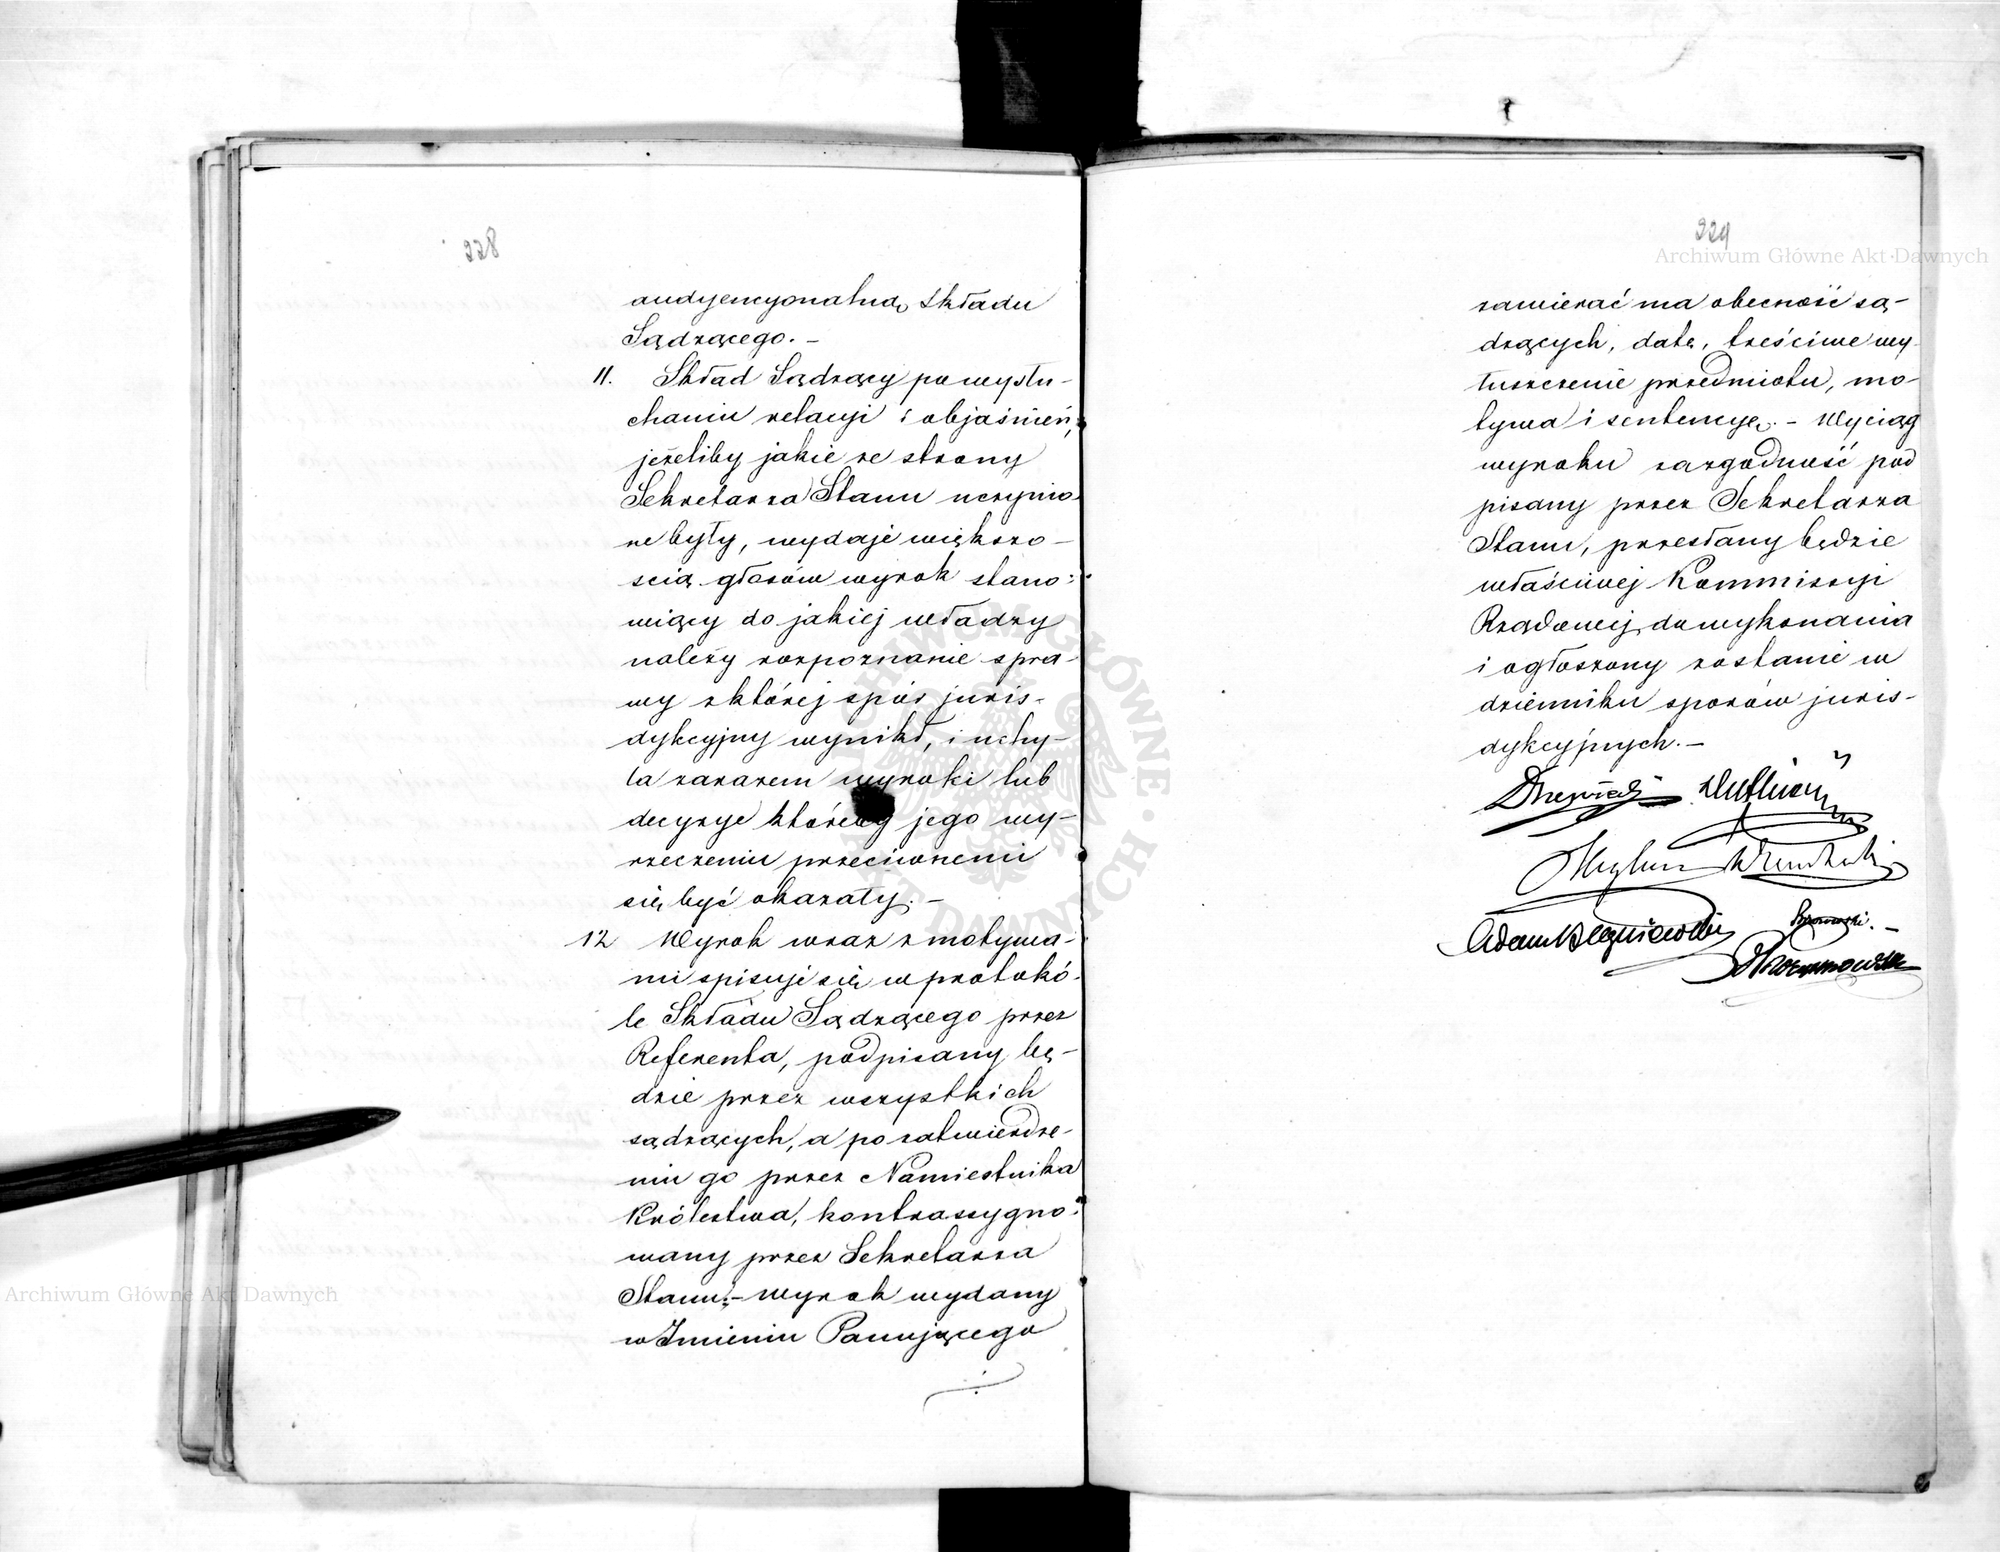 228
audyencyonalną Składu
Sądzącego. –
11. Skład Sądzący po wysłu-
chaniu relacyi i objaśnień,
jeżeliby jakie ze strony
Sekretarza Stanu uczynio
ne były, wydaje większo-
scią głosów wyrok stano:
wiący do jakiej władzy
należy rozpoznanie spra-
wy z której spór juris-
dykcyjny wynikł, i uchy-
la zarazem wyroki lub
decyzye któreby jego wy-
rzeczeniu przeciwnemi
się być okazały. –
12 Wyrok wraz z motywa-
mi spisuje się w protokó-
le Składu Sądzącego przez
Referenta, podpisany bę-
dzie przez wszystkich
sądzących, a po zatwierdze-
niu go przez Namiestnika
Królestwa, kontrassygno:
wany przez Sekretarza
Stanu; – wyrok wydany
w Imieniu Panującego
229
zawierać ma obecność są-
dzących, datę, treściwe wy-
łuszczenie przedmiotu, mo-
tywa i sentencyę. – Wyciąg
wyroku za zgodność pod
pisany przez Sekretarza
Stanu, przesłany będzie
właściwej Kommissyi
Rządowej do wykonania
i ogłoszony zostanie w
dzienniku sporów juris-
dykcyjnych. –
Archiwum Główne Akt Dawnych
Archiwum Główne Akt Dawnych
ARCHIWUM GŁÓWNE AKT DAWNYCH